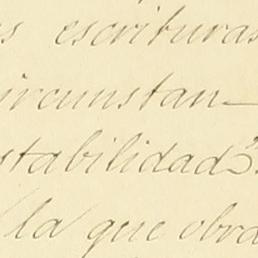 s escrituras
ircunstan-
stabilidad
la que obra